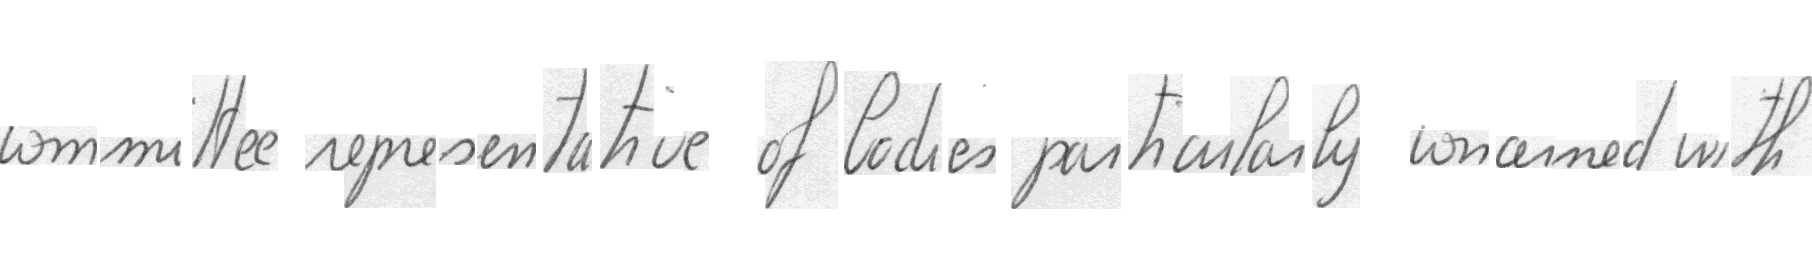 committee representative of bodies particularly concerned with